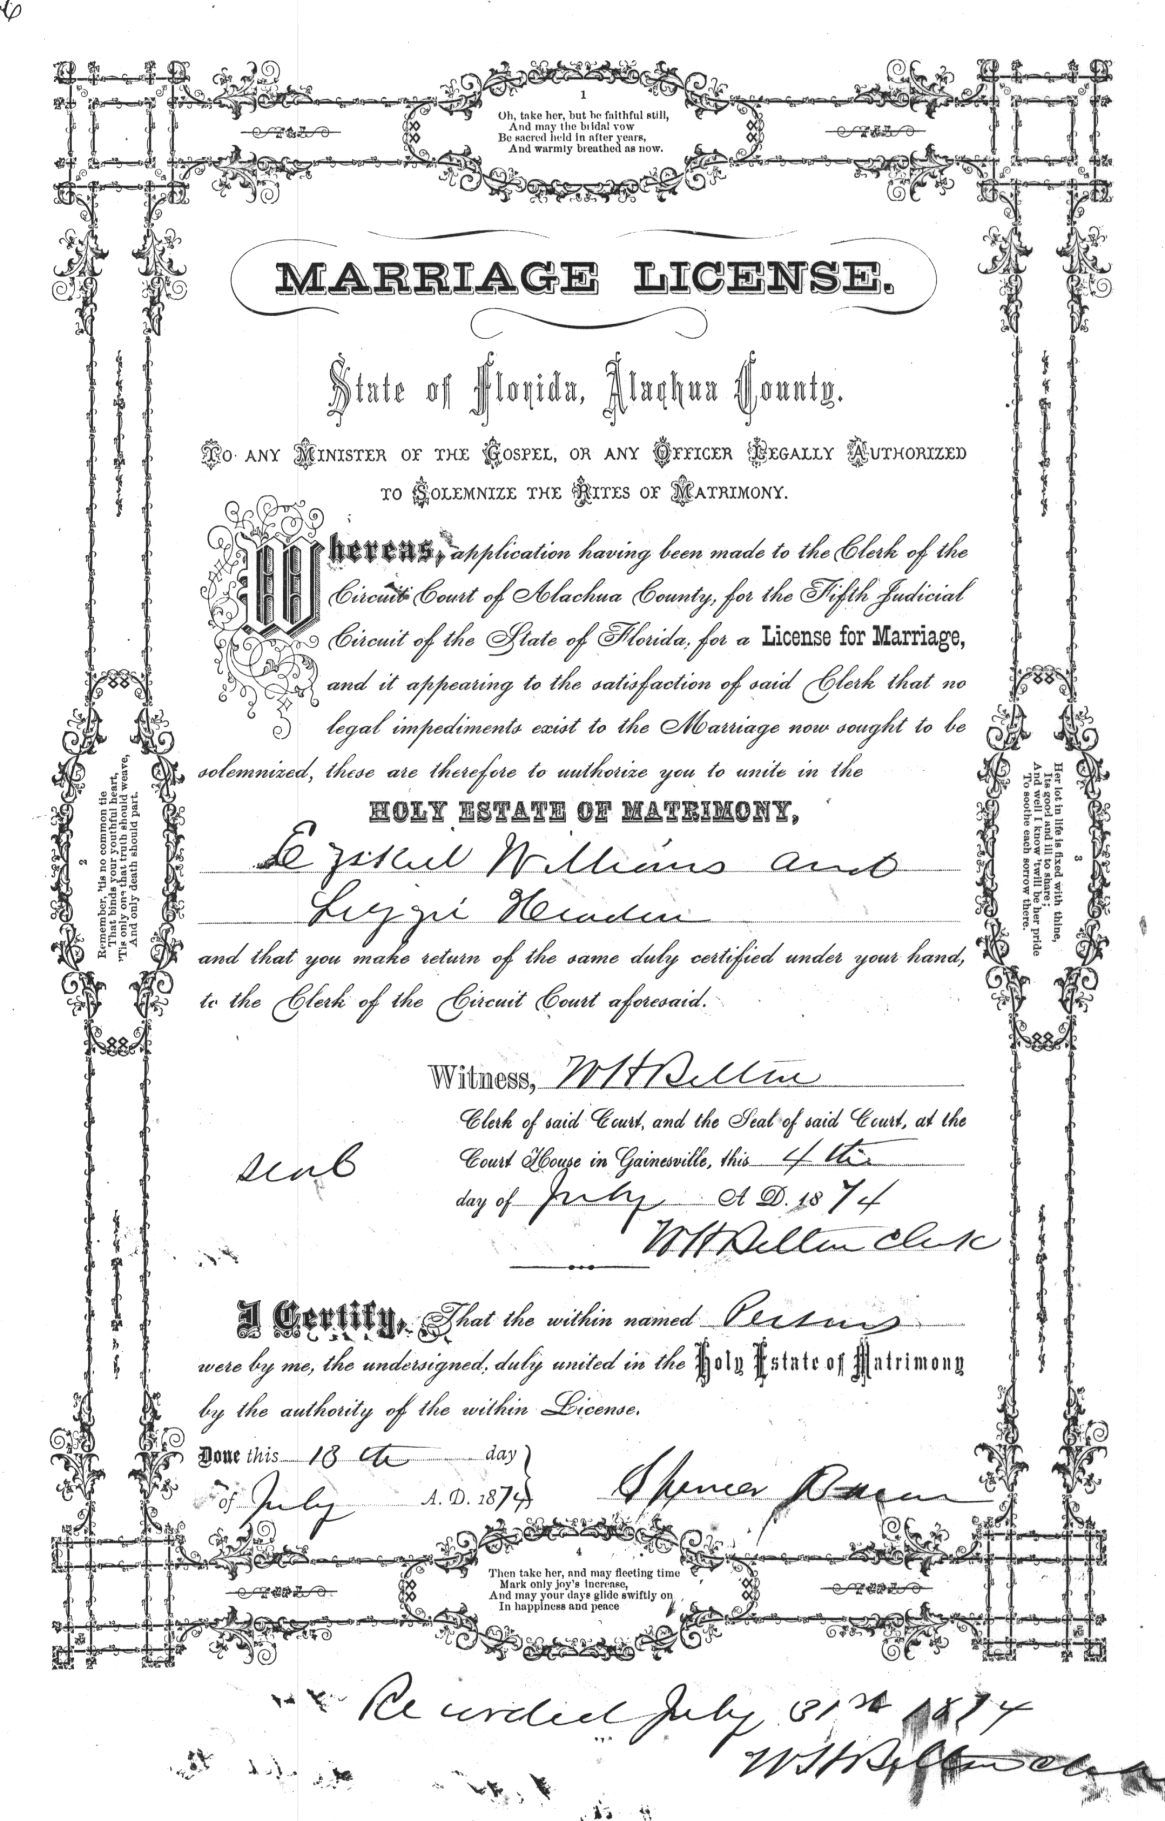 1
Oh, take her, but be faithful still,
And may the bridal vow
Be sacred held in after years,
And warmly breathed as now.
MARRIAGE LICENSE.
State of Florida, Alachua County.
TO ANY MINISTER OF THE GOSPEL, OR ANY OFFICER LEGALLY AUTHORIZED
TO SOLEMNIZE THE RITES OF MATRIMONY.
Whereas, application having been made to the Clerk of the
Circuit Court of Alachua County, for the Fifth Judicial
Circuit of the State of Florida, for a License for Marriage,
and it appearing to the satisfaction of said Clerk that no
legal impediments exist to the Marriage now sought to be
solemnized, these are therefore to authorize you to unite in the
HOLY ESTATE OF MATRIMONY,
Ezekiel Williams and
Lizzie
and that you make return of the same duly certified under your hand,
to the Clerk of the Circuit Court aforesaid.
Witness, W H Belton
Clerk of said Court, and the Seal of said Court, at the
Court House in Gainesville, this 4th
seal
day of July A. D. 1874
W H Belton Clerk
I Certify, That the within named Persons
were by me, the undersigned, duly united in the Holy Estate of Matrimony
by the authority of the within License.
Done this 18th day
of July A. D. 1874 Spencer
2
Remember, 'tis no common tie
That binds your youthful heart,
'Tis only one that truth should weave,
And only death should part.
3
Her lot in life is fixed with thine,
Its good and ill to share;
And well I know 'twill be her pride
To soothe each sorrow there.
4
Then take her, and may fleeting time
Mark only joy's increase,
And may your days glide swiftly on
In happiness and peace
Recorded July 31st 1874
W H Belton Clerk